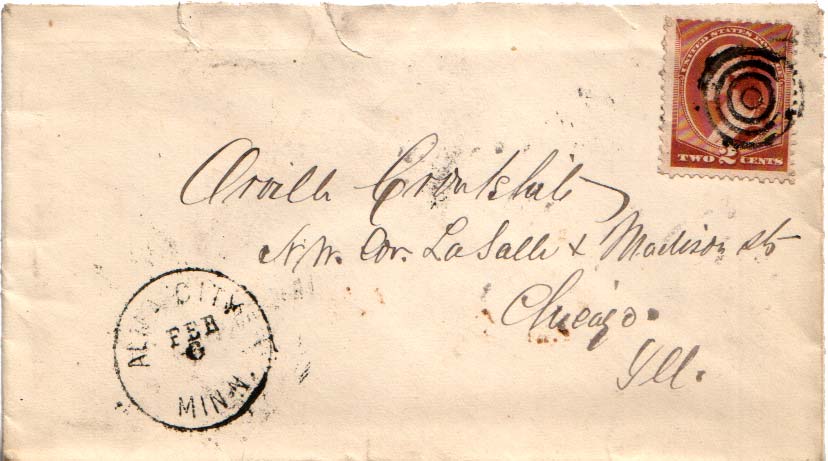 UNITED STATES POSTAGE
TWO 2 CENTS
Orville Cronkhite
N.W. Cor. LaSalle & Madison sts
Chicago.
Ill.
ALMA CITY
FEB
6
MINN.